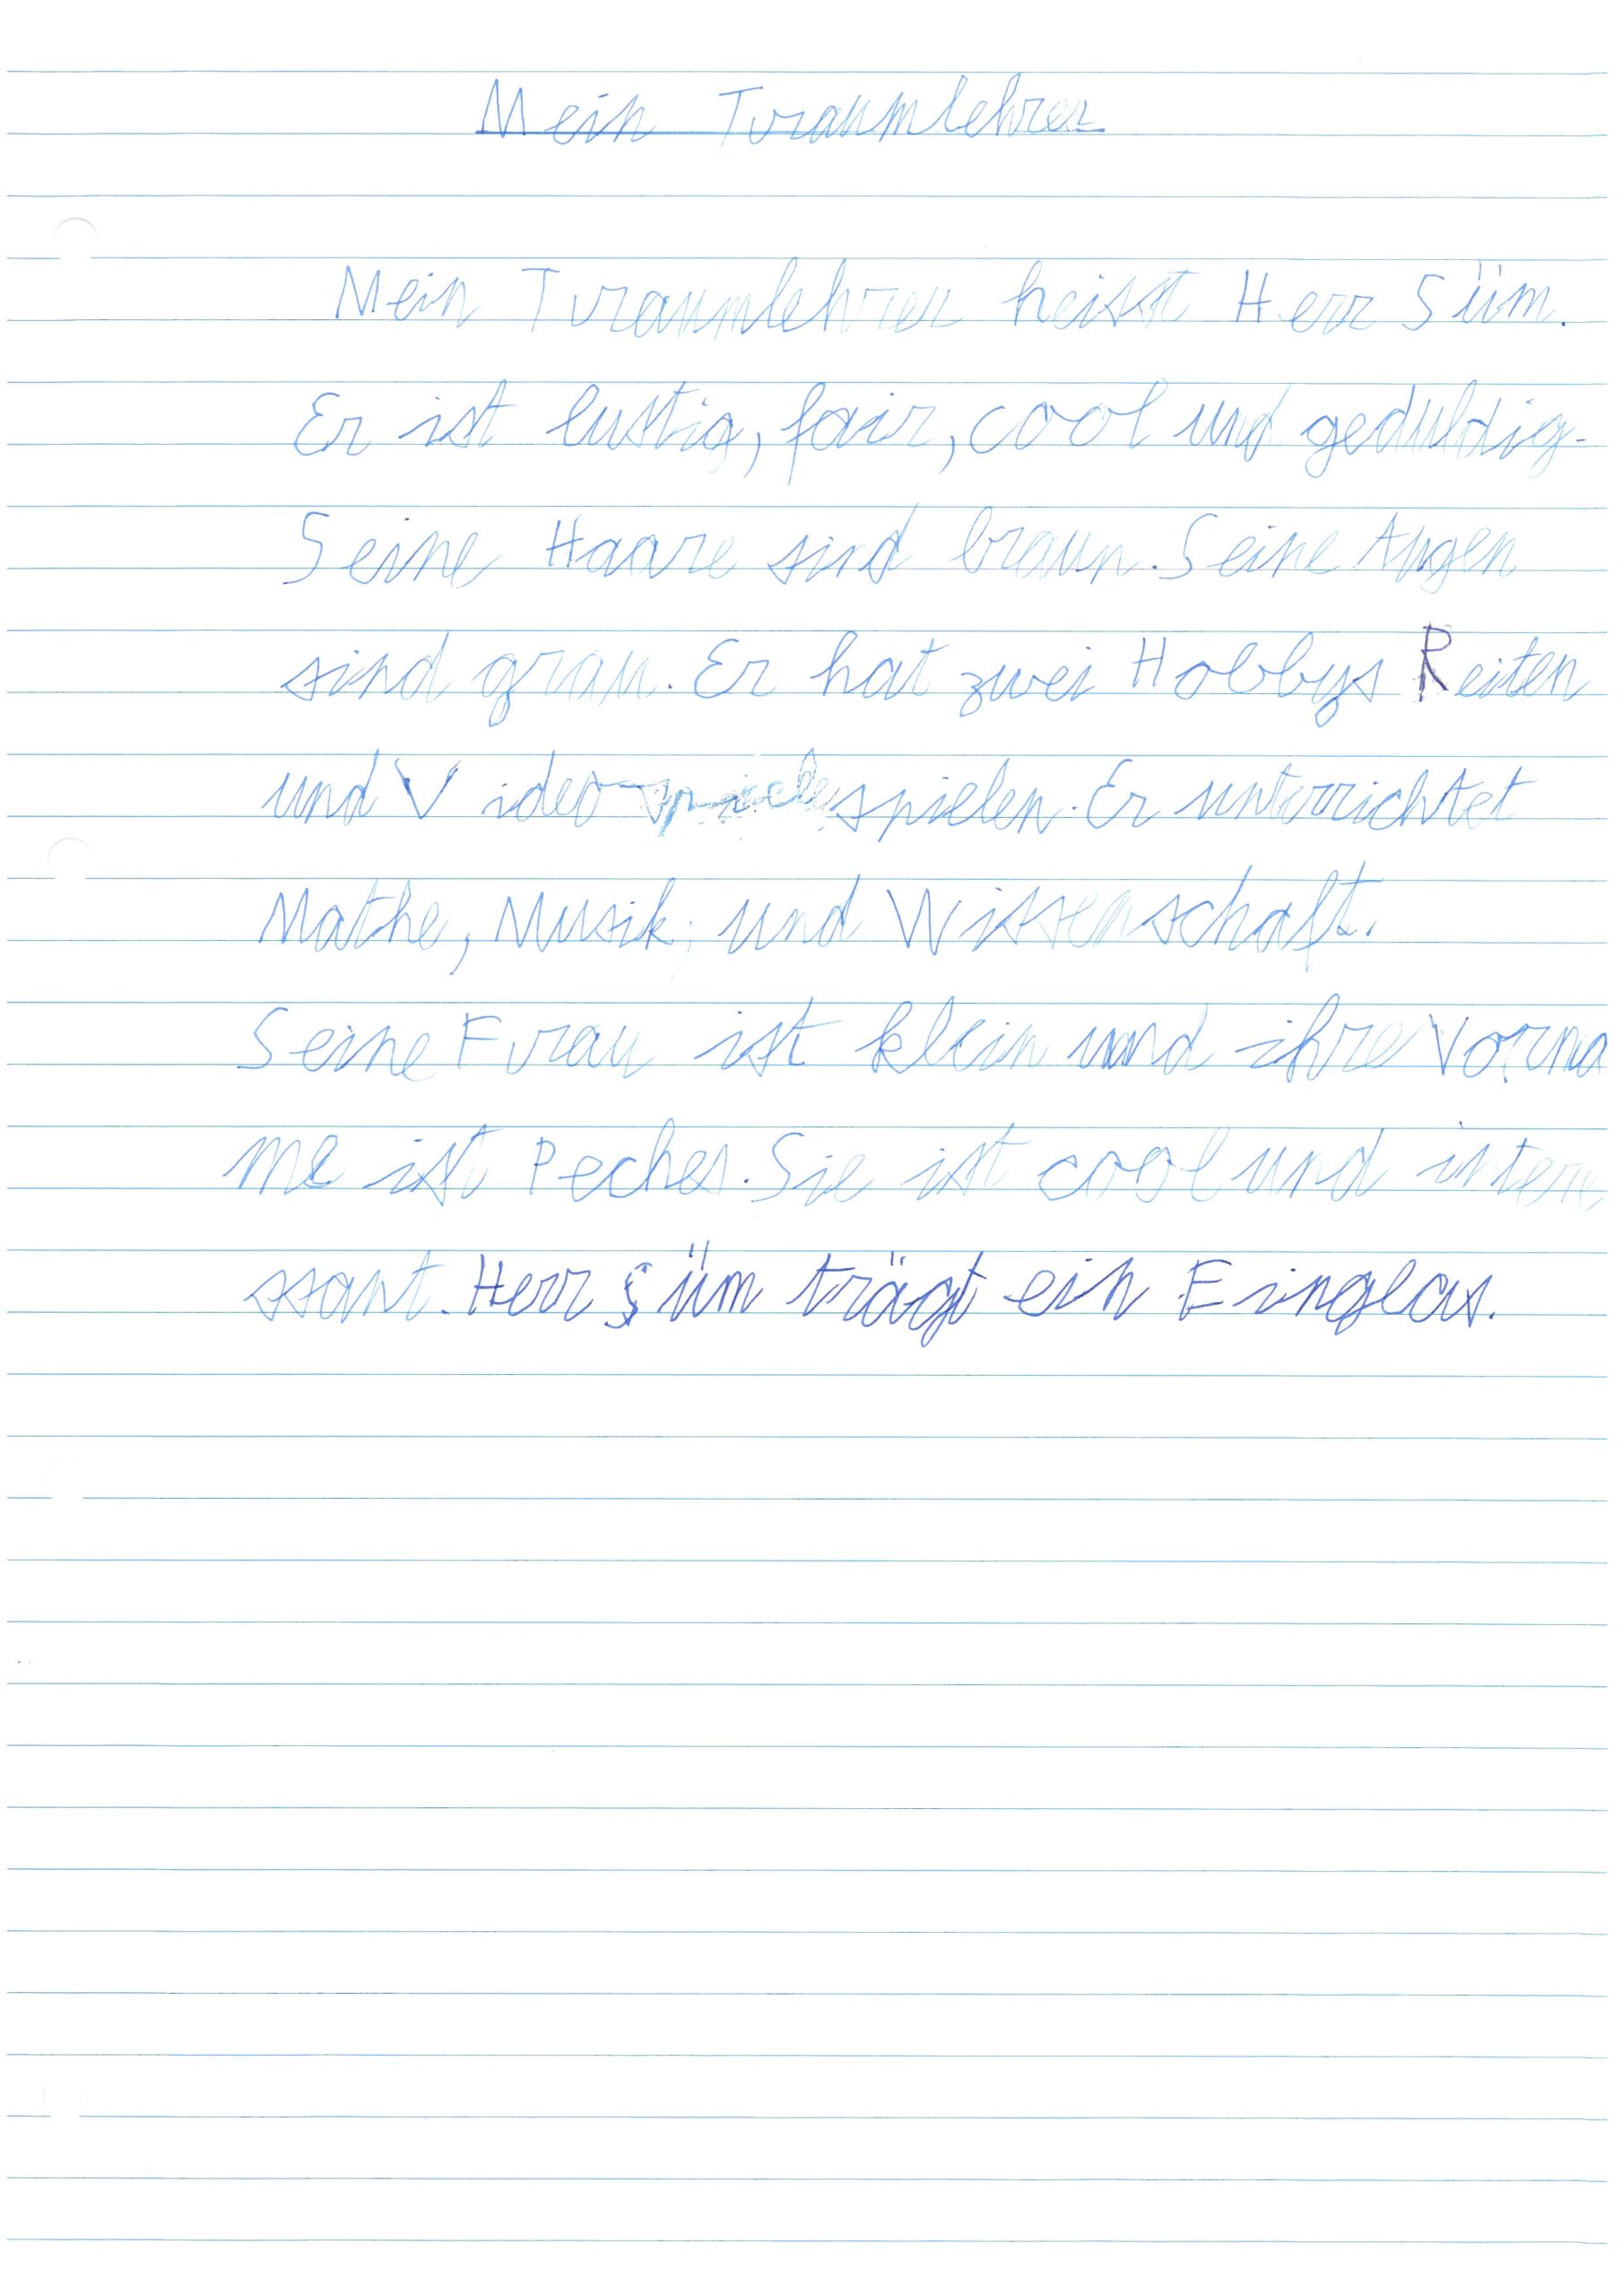 Mein Traumlehrer
Mein Traumlehrer heisst Herr Süm.
Er ist lustig, fair, cool und geduldig.
Seine Haare sind braun. Seine Augen
sind grau. Er hat zwei Hobbys Reiten
und Videospiele spielen. Er unterrichtet
Mathe, Musik, und Wissenschaft.
Seine Frau ist klein und ihre Vorna
me ist Peches. Sie ist cool und intere
ssant. Herr Süm trägt ein Einglas.